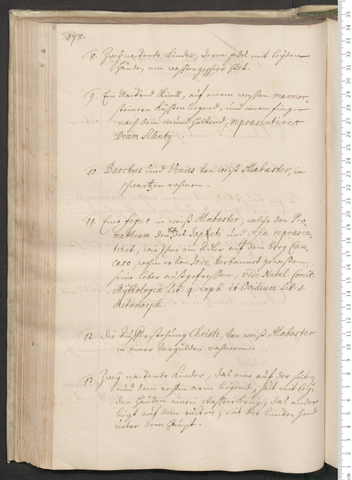 198.
8. Zwey nackende Kinder, deren jedes mit beyden
Händen ein wassergeschirr hält.
9. Ein nackend Kind, auf einem weißen marmor
steinern Küssen liegend, und einen finger
nach dem mund haltend, repraesentiret
Deum Silentij
10. Bacchus und Venus von weiß Alabaster, in
schwartzen rahmen.
11. Eine figur in weiß Alabaster, welche den Pro
metheum des Japeti und Asiae repraesen
tirt, wie ihme ein Adler auf dem berg Cau
caso, wohin er von Jove verbannet gewesen,
seine leber außgefressen, vide Natal Comit
Mythologia Lib. 4. Cap. et Ovidium Lib. 1.
Metamorph
12. Die Aufferstehung Christi, von weiß Alabaster
in einer verguldten rahmen
13. Zwey nackende Kinder, das eine auf der
und dem rechten arm liegend, hält mit bey
den Händen einen Wasserkrug; das andere
ligt auf dem rucken, mit der lincken hand
unter dem Haupt.